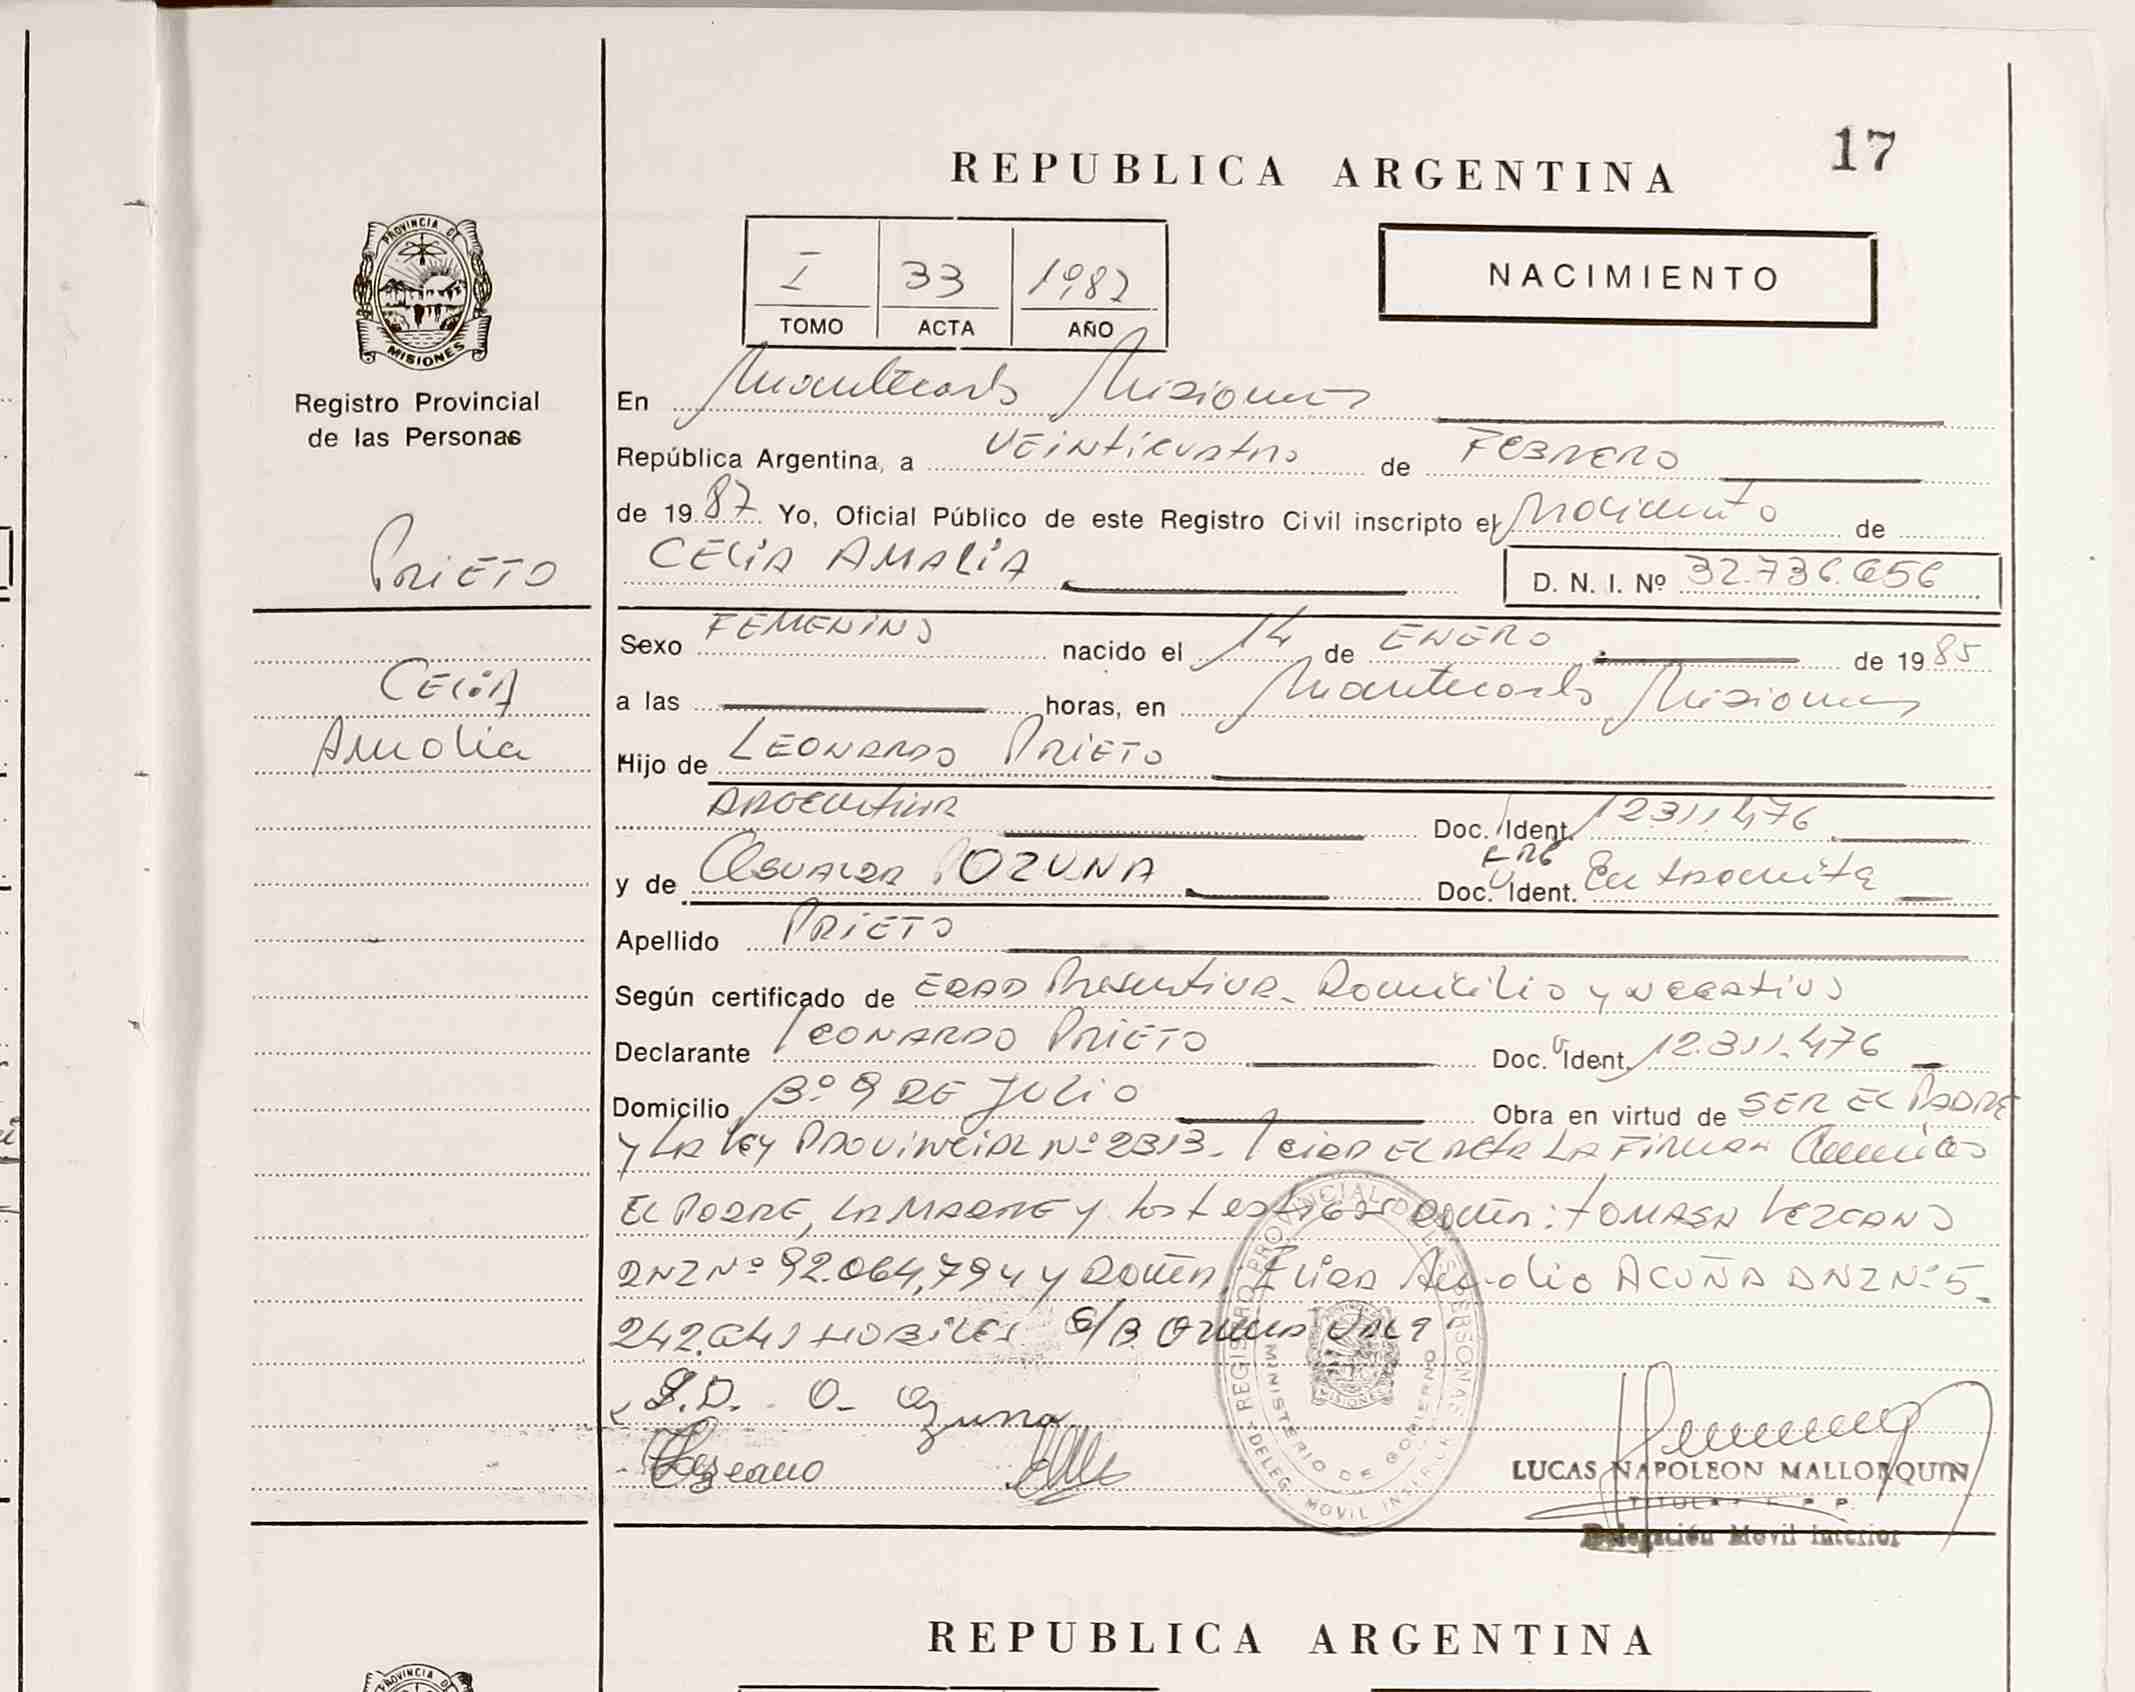 17
REPUBLICA ARGENTINA
PROVINCIA DE
MISIONES
Registro Provincial
de las Personas
PRIETO
CELIA
Amalia
I 33 1987
TOMO ACTA AÑO
NACIMIENTO
En Montecarlo Misiones
República Argentina, a VEINTICUATRO de FEBRERO
de 1987 Yo, Oficial Público de este Registro Civil inscripto el Nacimiento de
CELIA AMALIA D. N. I. Nº 32.736.656
Sexo FEMENINO nacido el 14 de ENERO de 1985
a las horas, en Montecarlo Misiones
Hijo de LEONARDO PRIETO
ARGENTINA Doc. Ident. 12311.476
y de OZUNA Doc. Ident. En tramite
Apellido PRIETO
Según certificado de EDAD Presuntiva - Domicilio y NEGATIVO
Declarante LEONARDO PRIETO Doc. Ident. 12.311.476
Domicilio Bº 9 DE JULIO Obra en virtud de SER EL PADRE
y LA LEY PROVINCIAL Nº 2313. LEIDA EL ACTA LA FIRMAN
EL PADRE, LA MADRE y los testigos DOÑA: TOMASA LEZCANO
DNI Nº 92.064,794 y DOÑA: ACUÑA DNI Nº 5.
242. HOBILES S/B. VALE
L.D. O- Ozuna
Lezcano
REGISTRO PROVINCIAL DE LAS PERSONAS
MINISTERIO DE GOBIERNO
DELEG. MOVIL INTER
LUCAS NAPOLEON MALLORQUIN
TITULAR R. P. P.
Delegación Movil Interior
REPUBLICA ARGENTINA
PROVINCIA DE